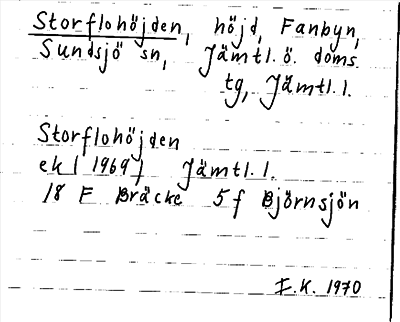 Storflohöjden, höjd, Fanbyn,
Sundsjö sn, Jämtl. ö. doms.
tg, Jämtl. l.
Storflohöjden
ek ( 1969 ) Jämtl. l.
18 F Bräcke 5 f Björnsjön
I.K. 1970